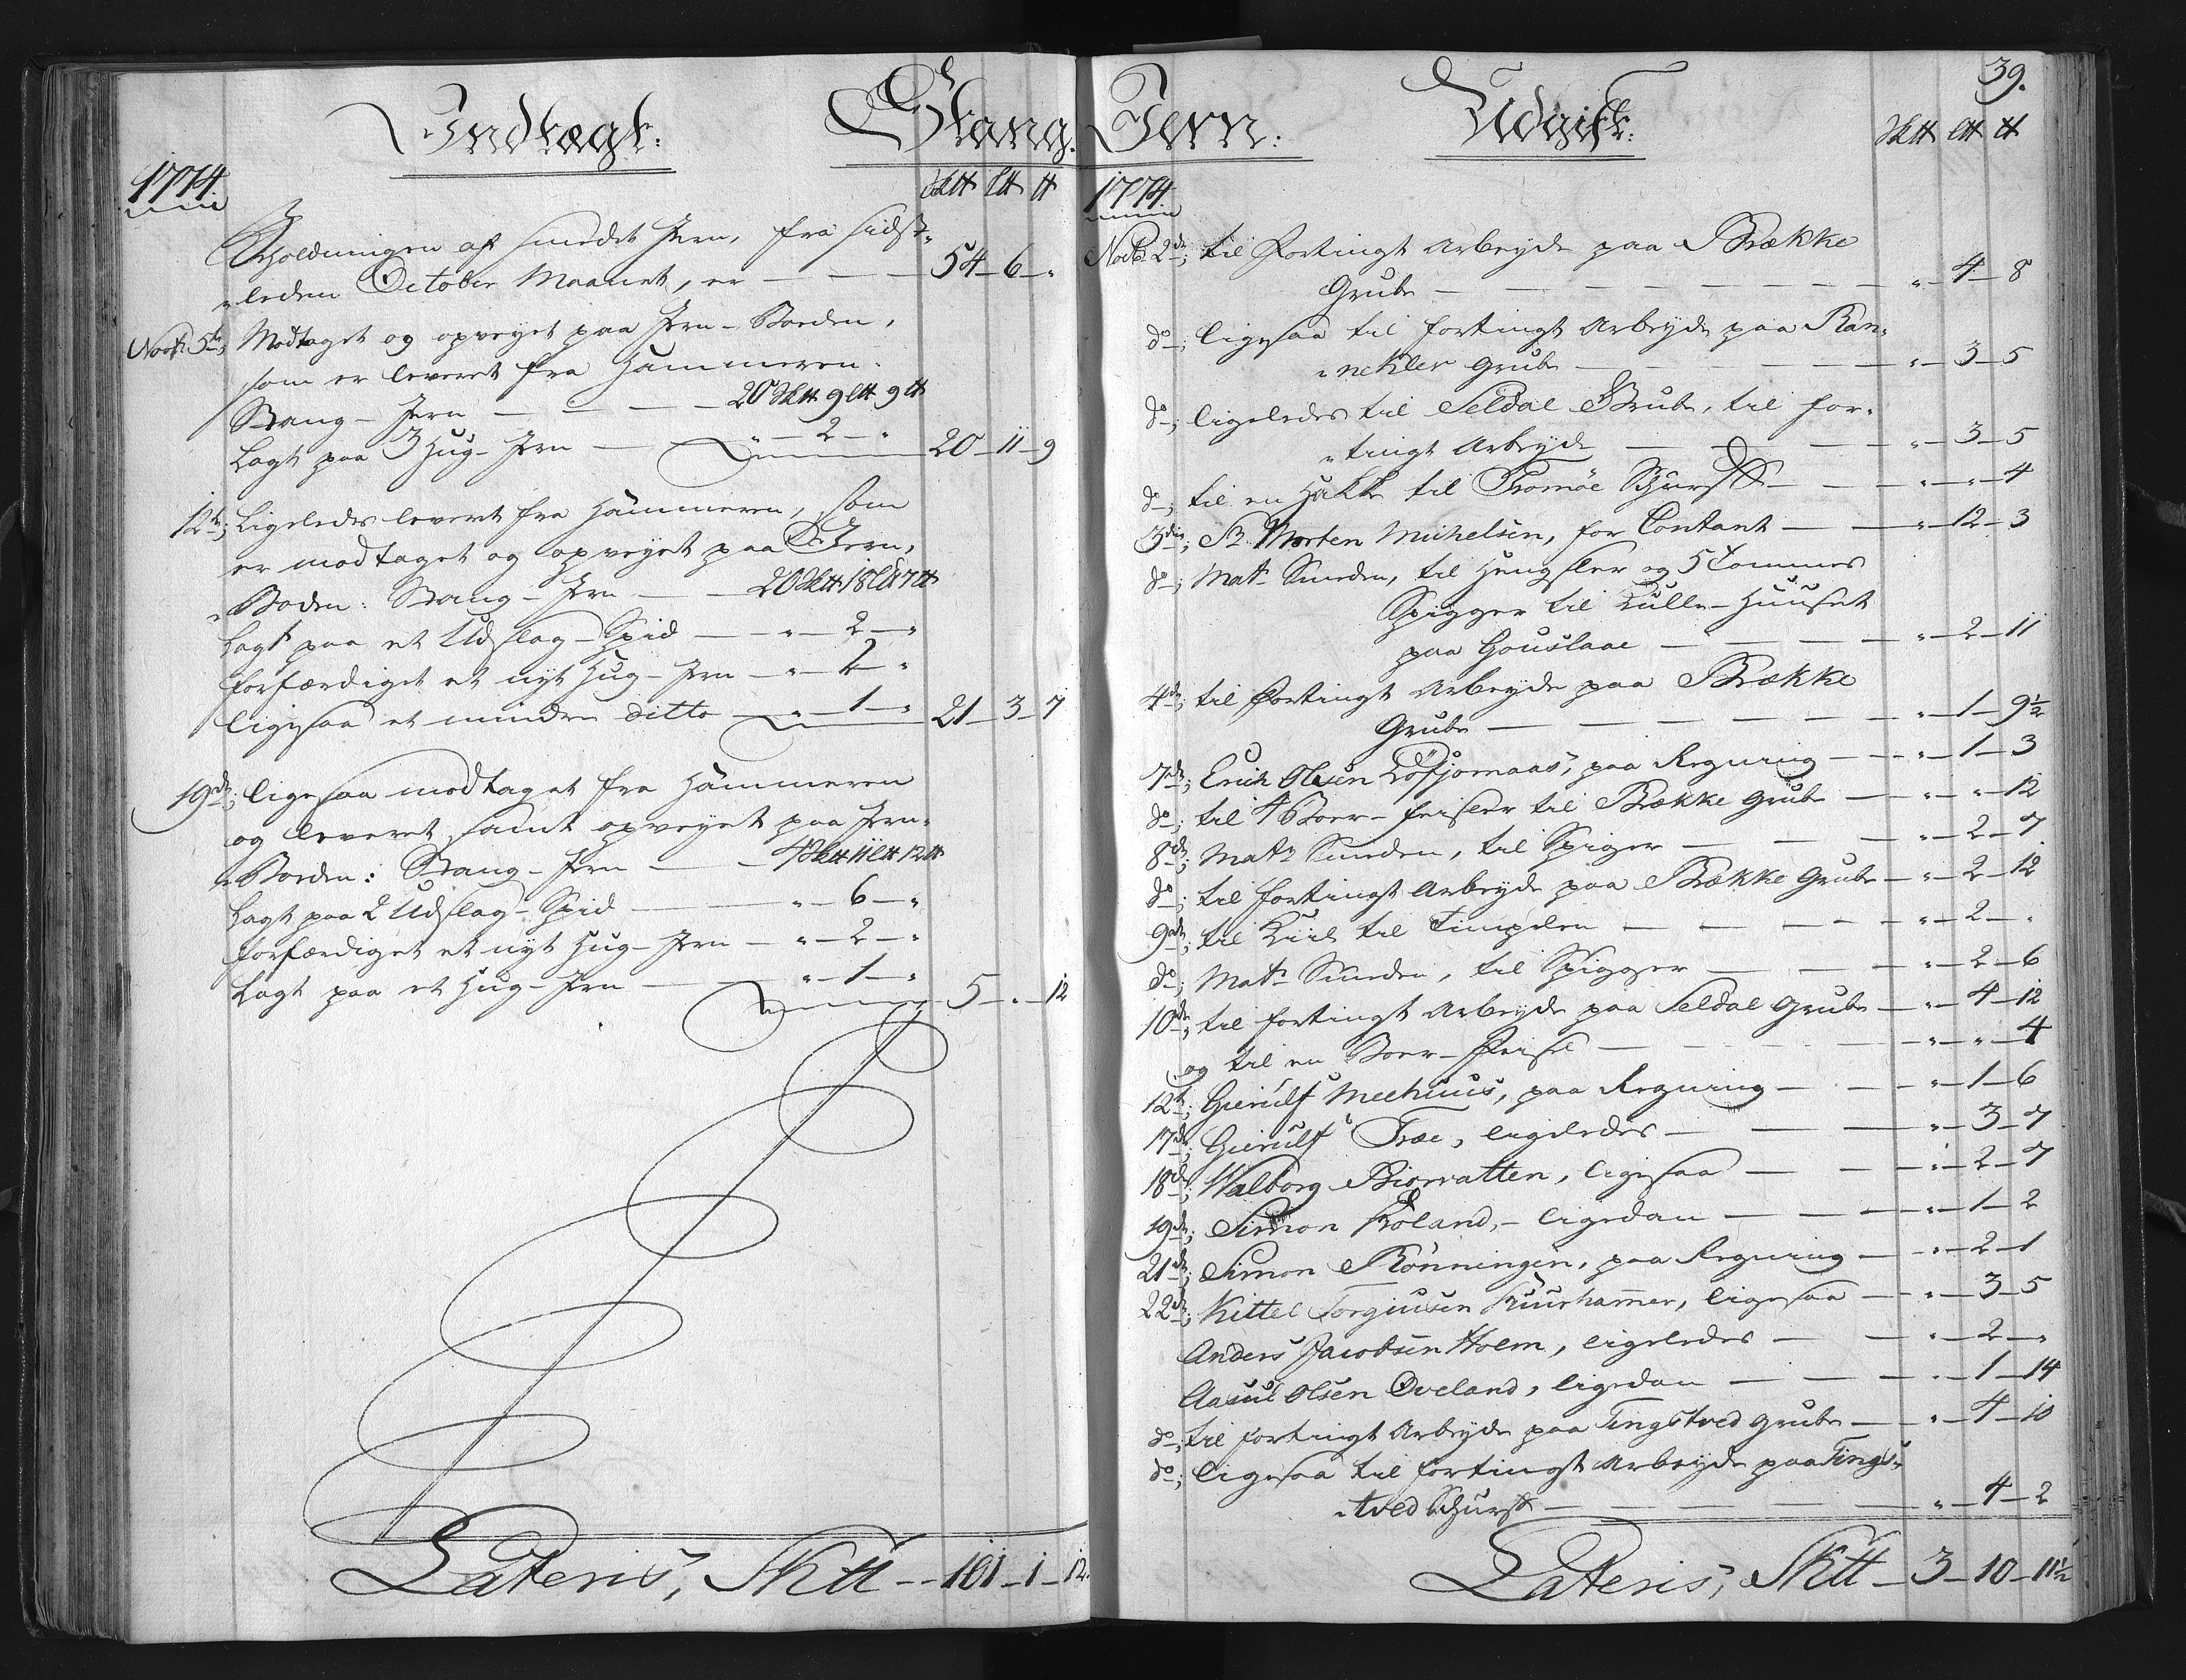 Indtægt:
Stang-
1774.
Sk℔ L℔ ℔
Beholdningen af smedet Jern, fra sidst„
„leden October Maanet, er — — — 54 — 6 — „
Novb: 5te; Modtaget og opveyet paa Jern-Boeden,
som er leveret fra Hammeren.
Stang-Jern — — — 20 Sk℔ 9 L℔ 9 ℔
Lagt paa 3 Hug-Jern — „ — 2 — „ 20 — 11 — 9
12te; Ligeledes levert fra Hammeren, som
er modtaget og opveyet paa Jern„
„Boden: Stang-Jern — — 20 Sk℔ 18 L℔ 7 ℔
Lagt paa et Udslag-Spid — „ — 2 — „
forfærdiget et nyt Hug-Jern — „ — 2 — „
ligesaa et mindre ditto — „ — 1 — „ 21 — 3 — 7
19de; ligesaa modtaget fra Hammeren
og leveret, samt opveyet paa Jern„
„Boeden: Stang-Jern — — 4 Sk℔ 11 L℔ 12 ℔
Lagt paa 2 Udslag-Spid — „ — 6 — „
forfærdiget et nyt Hug-Jern — „ — 2 — „
Lagt paa et Hug-Jern — „ — 1 — „ 5 — „ — 12
Lateris, Sk℔ — 101 — 1 — 12.
39.
Jern:
Udgift:
Sk℔ L℔ ℔
1774
Novb: 2de; til Fortingt Arbeyde paa Brække
Grube — — — „ — 4 — 8
do; ligesaa til fortingt Arbeyde paa Ran„
„nekler Grube — — — „ — 3 — 5
do; ligeledes til Seldal Grube, til for„
„tingt Arbeyde — — — „ — 3 — 5
do; til en Hakke til Tromøe Schurff — — „ — „ — 4
3die; Sr. Morten Michelsen, for Contant — — „ — 12 — 3
do; Mats Smeden, til Hengsler og 5 Tommes
Spigger til Kulle-Huuset
paa Gouslaae — — — „ — 2 — 11
4de; til Fortingt Arbeyde paa Brække
Grube — — — „ — 1 — 9½
7de; Erich Olsen Løfjomaas, paa Regning — — „ — 1 — 3
do; til 4 Boer-feisler til Brække Grube — „ — „ — 12
8de; Mats Smeden, til Spiger — — „ — 2 — 7
do; til fortingt Arbeyde paa Brække Grube — „ — 2 — 12
9de; til Kiil til Timpelen — — — „ — 2 — „
do; Mats Smeden, til Spigger — — „ — 2 — 6
10de; til fortingt Arbeyde paa Seldal Grube — „ — 4 — 12
og til en Boer-Feisel — — — „ — „ — 4
12te; Gierulf Meehuus, paa Regning — — „ — 1 — 6
17de; Gierulf Træe, ligeledes — — „ — 3 — 7
18de; Walborg Biorvatten, ligesaa — — „ — 2 — 7
19de; Simon Roland, — ligedan — — „ — 1 — 2
21de; Simon Rønningen, paa Regning — „ — 2 — 1
22de; Kittel Torgiusen Kuurhamer, ligesaa — „ — 3 — 5
Anders Jacobsen Holm, ligeledes — — „ — 2 — „
Aasul Olsen Oveland, ligedan — — „ — 1 — 14
do; til fortingt Arbeyde paa Tingstved Grube — „ — 4 — 10
do; ligesaa til fortingt Arbeyde paa Tings„
„tved Schurff — — — „ — 4 — 2
Lateris, Sk℔ — 3 — 10 — 11½